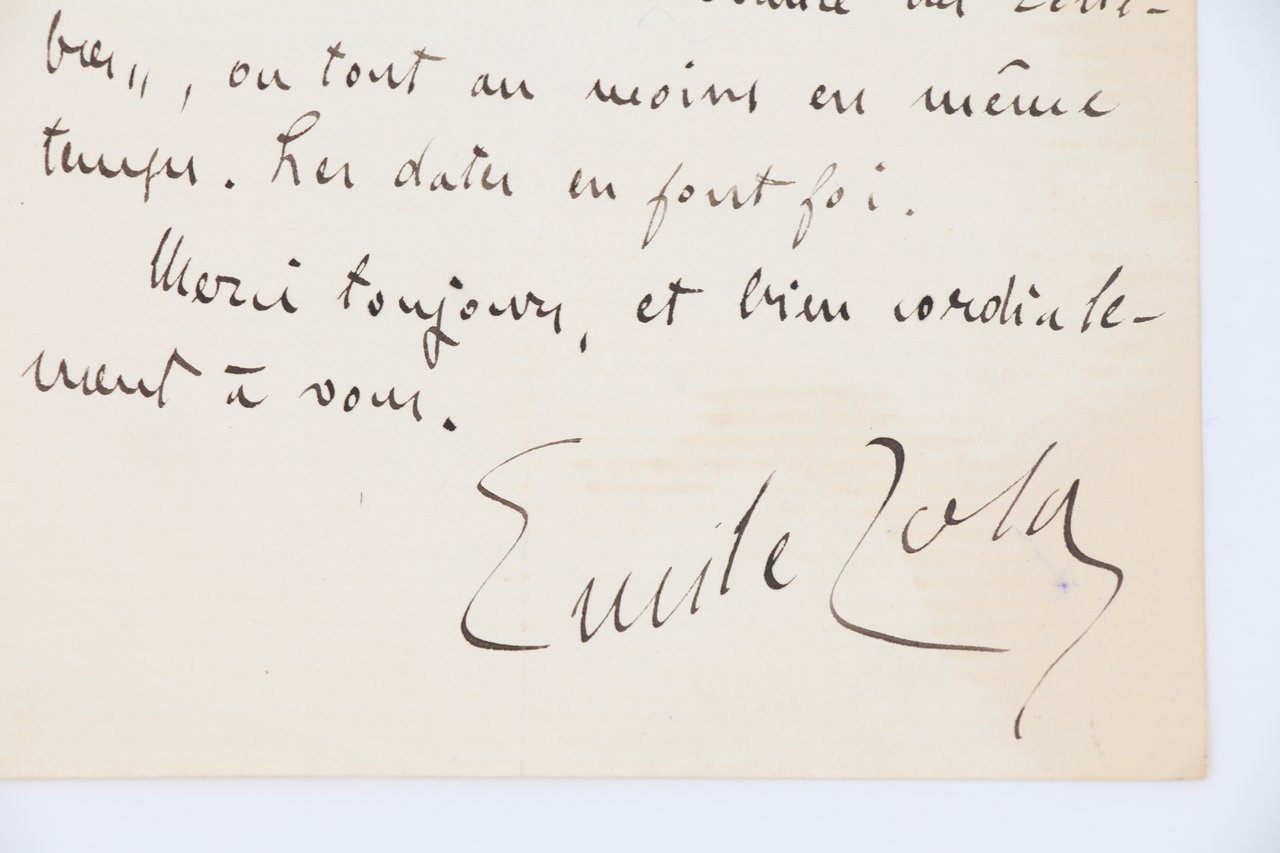 bres", ou tout au moins en même
temps. Les dates en font foi.
Merci toujours, et bien cordiale-
ment à vous.
Emile Zola